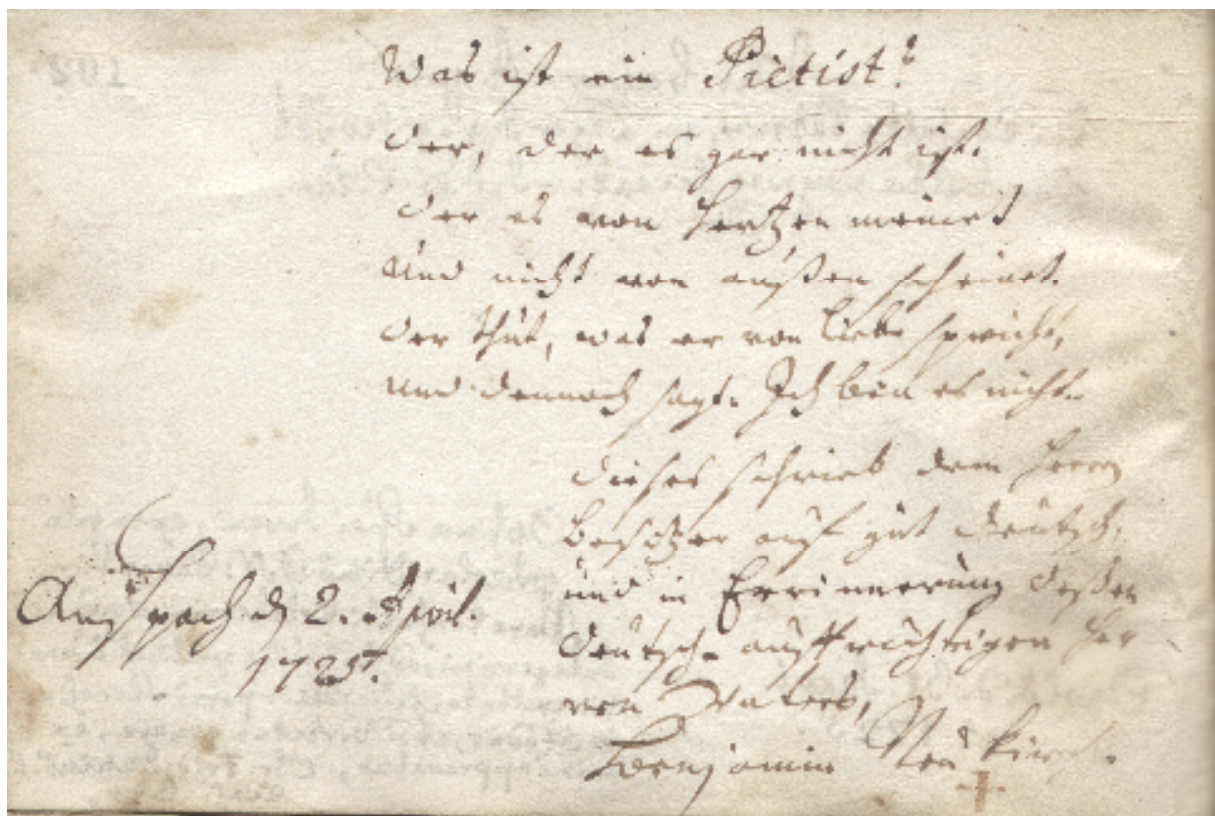 Was ist ein Pietist?
Der, der es gar nicht ist.
Der es von Hertzen meinet
Und nicht von außen scheinet.
Der thut, was er von Liebe spricht,
Und dennoch sagt. Ich bin es nicht.
Dieses schrieb dem Herrn
Besitzer auf gut Deutsch.
und in Errinnerung deßen
Deutsch-auffrichtigen Her
ren Vaters,
Benjamin Neukirch.
Anspach d 2. April.
1725.
102